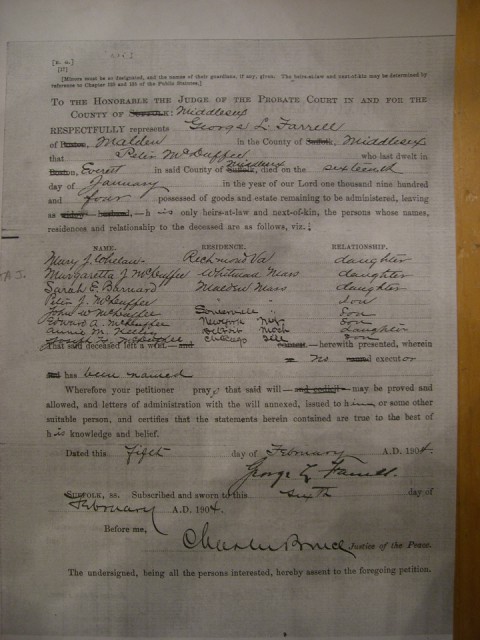 [17]
[Minors must be so designated, and the names of their guardians, if any, given. The heirs-at-law and next-of-kin may be determined by
reference to Chapter 133 and 135 of the Public Statutes.]
TO THE HONORABLE THE JUDGE OF THE PROBATE COURT IN AND FOR THE
COUNTY OF SUFFOLK: Middlesex
RESPECTFULLY represents George L. Farrell
of Boston, Malden in the County of Suffolk, Middlesex
that Peter McDuffee who last dwelt in
Boston, Everett in said County of Suffolk, Middlesex died on the sixteenth
day of January in the year of our Lord one thousand nine hundred
and four possessed of goods and estate remaining to be administered, leaving
as widow husband, —h is only heirs-at-law and next-of-kin, the persons whose names,
residences and relationship to the deceased are as follows, viz.:
NAME. RESIDENCE. RELATIONSHIP.
Mary J. Whelan Richmond Va daughter
Margaretta J. McDuffee Whitman Mass daughter
Sarah E. Barnard Malden Mass daughter
Peter J. McDuffee " " Son
John W McDuffee Somerville " Son
Edward A. McDuffee Newyork Son
Annie M. Detroit Mich daughter
Joseph McDuffee Chicago Ill Son
That said deceased left a will — and herewith presented, wherein
no executor
has been named
Wherefore your petitioner prays that said will — and codicil — may be proved and
allowed, and letters of administration with the will annexed, issued to him or some other
suitable person, and certifies that the statements herein contained are true to the best of
his knowledge and belief.
Dated this fifth day of February A.D. 1904.
George L Farrell.
SUFFOLK, ss. Subscribed and sworn to this sixth day of
February A.D. 1904.
Before me,
Charles Bruce Justice of the Peace.
The undersigned, being all the persons interested, hereby assent to the foregoing petition.